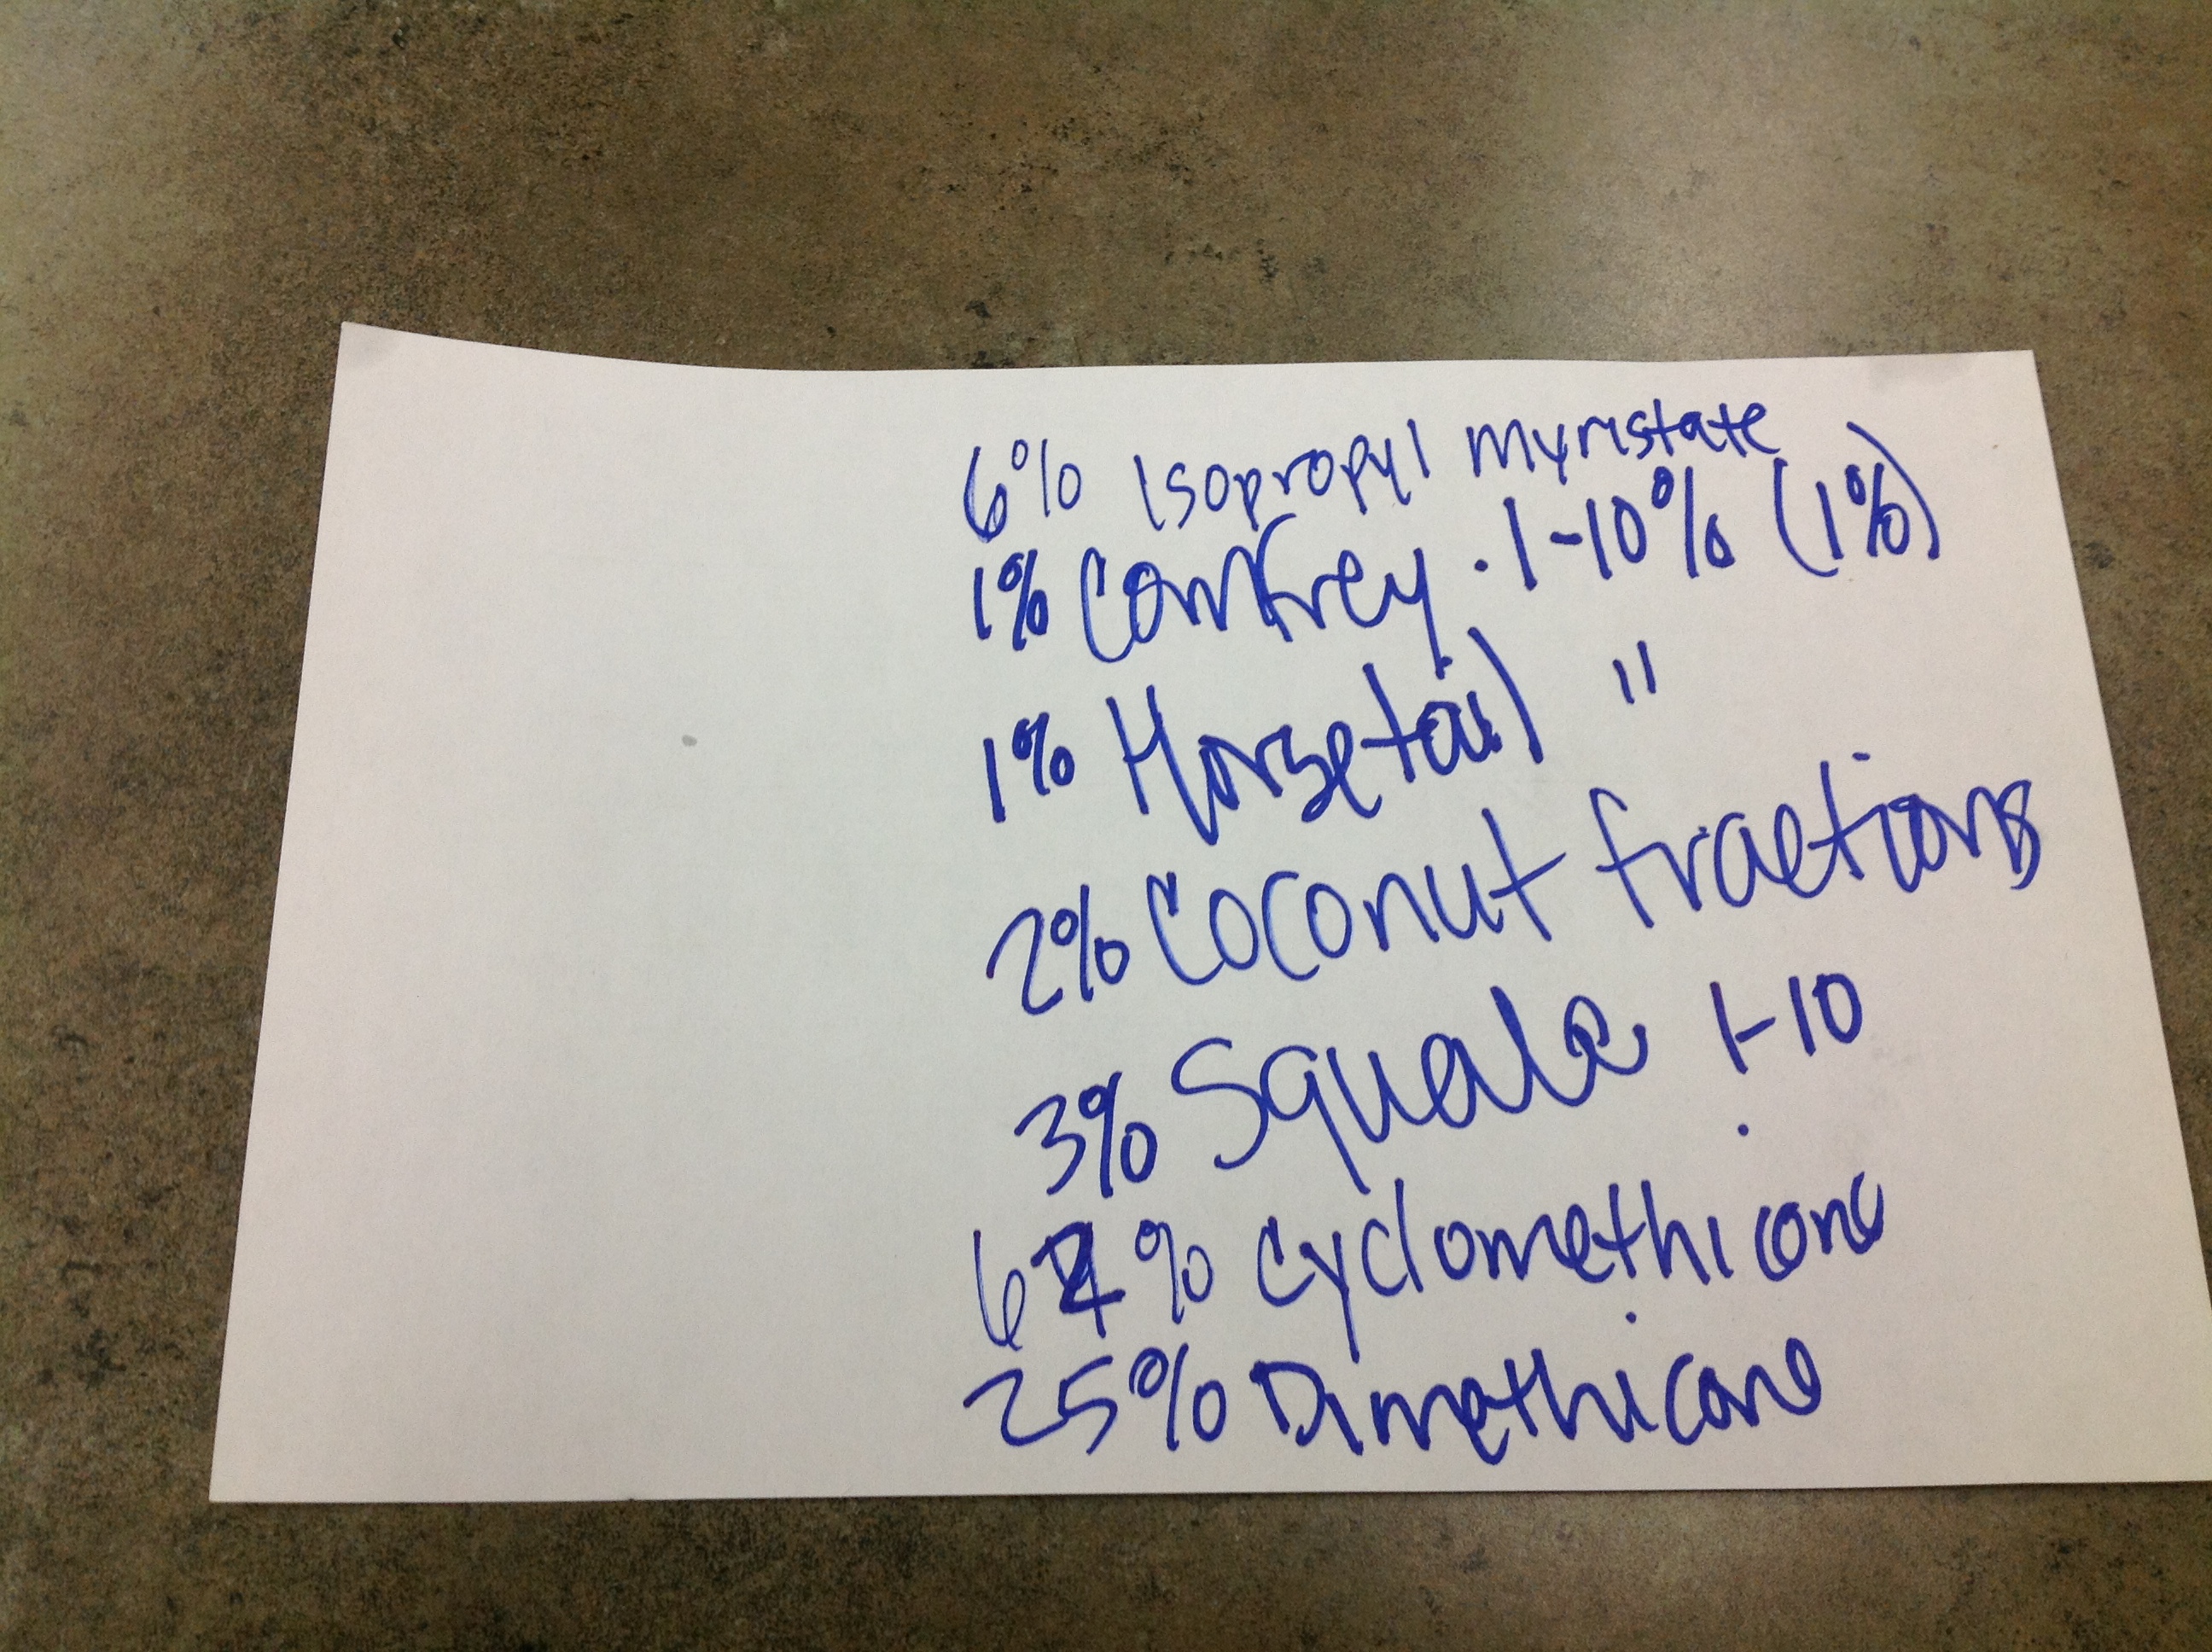 6% Isopropyl myristate
1% Comfrey .1-10% (1%)
1% Horsetail "
2% Coconut fractions
3% Squale 1-10
62% Cyclomethicone
25% Dimethicone